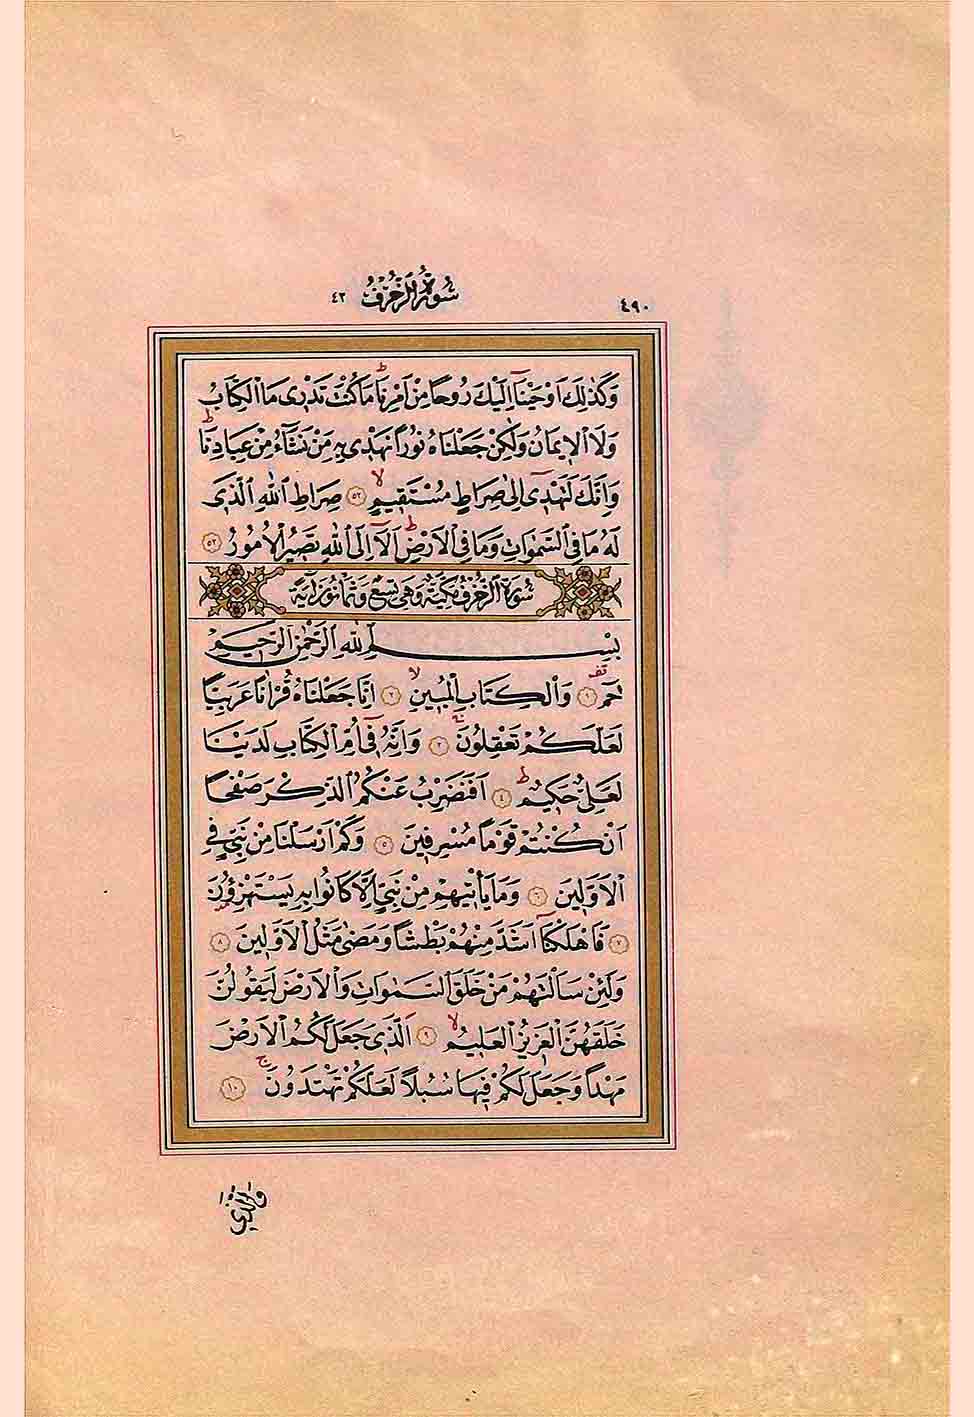 ٤٩٠ سُورَةُ الزُّخْرُفِ ٤٣
وَكَذٰلِكَ اَوْحَيْنَٓا اِلَيْكَ رُوحًا مِنْ اَمْرِنَاۜ مَا كُنْتَ تَدْر۪ي مَا الْكِتَابُ
وَلَا الْا۪يمَانُ وَلٰكِنْ جَعَلْنَاهُ نُورًا نَهْد۪ي بِه۪ مَنْ نَشَٓاءُ مِنْ عِبَادِنَاۜ
وَاِنَّكَ لَتَهْد۪ٓي اِلٰى صِرَاطٍ مُسْتَق۪يمٍۙ ﴿٥٢﴾ صِرَاطِ اللّٰهِ الَّذ۪ي
لَهُ مَا فِي السَّمٰوَاتِ وَمَا فِي الْاَرْضِۜ اَلَٓا اِلَى اللّٰهِ تَص۪يرُ الْاُمُورُ ﴿٥٣﴾
سُورَةُ الزُّخْرُفِ مَكِّيَّةٌ وَهِيَ تِسْعٌ وَثَمَانُونَ اٰيَةً
بِسْمِ اللّٰهِ الرَّحْمٰنِ الرَّح۪يمِ
حٰمٓ ﴿١﴾ وَالْكِتَابِ الْمُب۪ينِۙ ﴿٢﴾ اِنَّا جَعَلْنَاهُ قُرْاٰنًا عَرَبِيًّا
لَعَلَّكُمْ تَعْقِلُونَۚ ﴿٣﴾ وَاِنَّهُ ف۪ٓي اُمِّ الْكِتَابِ لَدَيْنَا
لَعَلِيٌّ حَك۪يمٌۜ ﴿٤﴾ اَفَنَضْرِبُ عَنْكُمُ الذِّكْرَ صَفْحًا
اَنْ كُنْتُمْ قَوْمًا مُسْرِف۪ينَ ﴿٥﴾ وَكَمْ اَرْسَلْنَا مِنْ نَبِيٍّ فِي
الْاَوَّل۪ينَ ﴿٦﴾ وَمَا يَأْت۪يهِمْ مِنْ نَبِيٍّ اِلَّا كَانُوا بِه۪ يَسْتَهْزِؤُ۫نَ
﴿٧﴾ فَاَهْلَكْنَٓا اَشَدَّ مِنْهُمْ بَطْشًا وَمَضٰى مَثَلُ الْاَوَّل۪ينَ ﴿٨﴾
وَلَئِنْ سَاَلْتَهُمْ مَنْ خَلَقَ السَّمٰوَاتِ وَالْاَرْضَ لَيَقُولُنَّ
خَلَقَهُنَّ الْعَز۪يزُ الْعَل۪يمُۙ ﴿٩﴾ اَلَّذ۪ي جَعَلَ لَكُمُ الْاَرْضَ
مَهْدًا وَجَعَلَ لَكُمْ ف۪يهَا سُبُلًا لَعَلَّكُمْ تَهْتَدُونَۚ ﴿١٠﴾
وَالَّذ۪ي